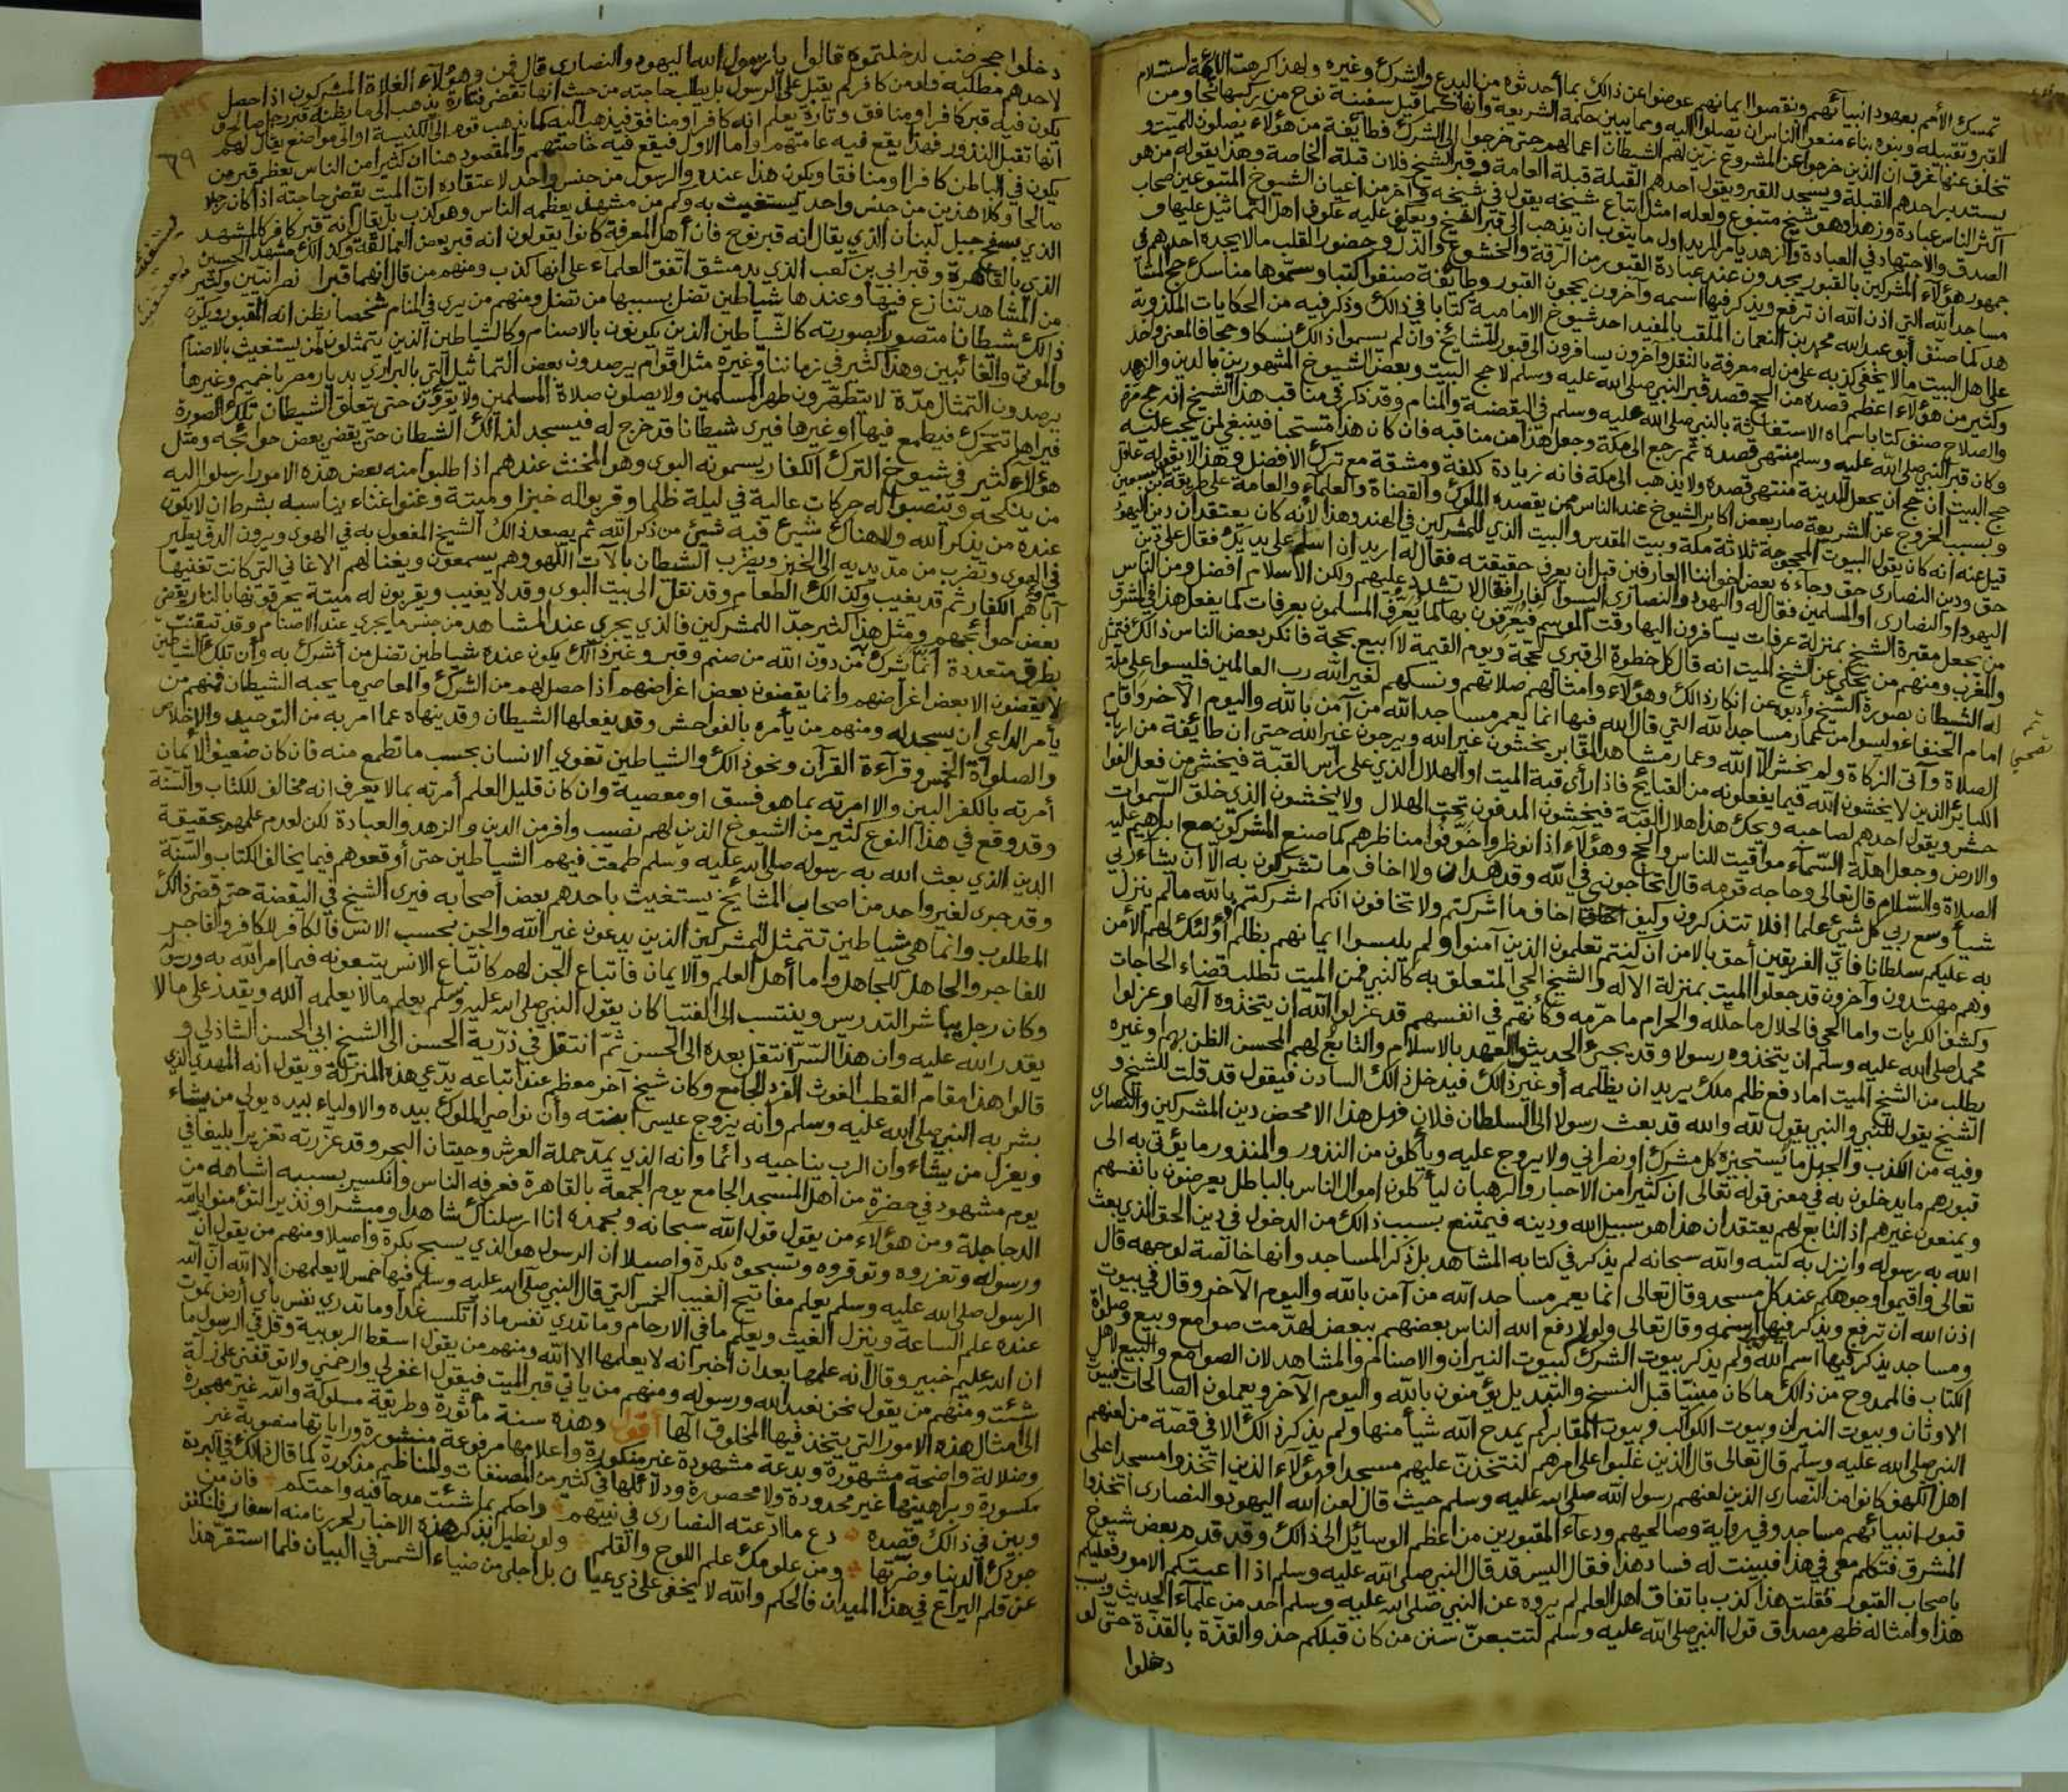 تمسك الأمم بعهود انبيائهم ونقصوا ايمانهم عوضوا عن ذالك بما أحدثوه من البدع والشرك وغيره ولهذا كرهت الائمة استلام
القبر وتقبيله وبنوه بناء منعوا الناس ان يصلوا اليه ومما يبين حكمة الشريعة وانها كما قيل سفينة نوح من ركبها نجا ومن
تخلف عنها غرق ان الذين خرجوا عن المشروع زين لهم الشيطان اعمالهم حتى خرجوا الى الشرك فطائفة من هؤلاء يصلون للميت و
يستدبر احدهم القبلة ويسجد للقبر ويقول احدهم القبلة قبلة العامة وقبر الشيخ فلان قبلة الخاصة وهذا يقوله من هو
اكثر الناس عبادة وزهدا وهو شيخ متبوع ولعله امثل اتباع شيخه يقول في شيخه وآخر من اعيان الشيوخ المتبوعين اصحاب
الصدق والاجتهاد في العبادة والزهد يأمر المريد اول ما يتوب ان يذهب الى قبر الشيخ ويعكف عليه عكوف اهل التماثيل عليها و
جمهور هؤلاء المشركين بالقبور يجدون عند عبادة القبور من الرقة والخشوع والذل وحضور القلب مالا يجده احدهم في
مساجد الله التي اذن الله ان ترفع ويذكر فيها اسمه وآخرون يحجون القبور وطائفة صنفوا كتبا وسموها مناسك حج المشا
هد كما صنف أبو عبد الله محمد بن النعمان الملقب بالمفيد احد شيوخ الامامية كتابا في ذالك وذكر فيه من الحكايات المكذوبة
على اهل البيت مالا يخفى كذبه على من له معرفة بالنقل وآخرون يسافرون الى قبور المشائخ وان لم يسموا ذالك نسكا وحجا فالمعنى واحد
وكثير من هؤلاء اعظم قصده من الحج قصد قبر النبي صلى الله عليه وسلم لا حج البيت وبعض الشيوخ المشهورين بالدين والزهد
والصلاح صنف كتابا سماه الاستغاثة بالنبي صلى الله عليه وسلم في اليقضة والمنام وقد ذكر في مناقب هذا الشيخ انه حج مرة
وكان قبر النبي صلى الله عليه وسلم منتهى قصده ثم رجع الى مكة وجعل هذا من مناقبه فان كان هذا مستحبا فينبغي لمن يجب عليه
حج البيت ان حج ان يجعل المدينة منتهى قصده ولا يذهب الى مكة فانه زيادة كلفة ومشقة مع ترك الافضل وهذا لا يقوله عاقل
وبسبب الخروج عن الشريعة صار بعض اكابر الشيوخ عند الناس ممن يقصده الملوك والقضاة والعلماء والعامة على طريقة ابن سبعين
قيل عنه انه كان يقول البيوت المحجوجة ثلاثة مكة وبيت المقدس والبيت الذي للمشركين في الهند وهذا لانه كان يعتقد ان دين اليهود
حق ودين النصارى حق وجاءه بعض اخواننا العارفين قبل ان يعرف حقيقته فقال له اريد ان اسلك على يديك فقال على دين
اليهود او النصارى او المسلمين فقال له واليهود والنصارى اليسوا كفارا فقال لا تشدد عليهم ولكن الاسلام افضل ومن الناس
من يجعل مقبرة الشيخ بمنزلة عرفات يسافرون اليها وقت الموسم فيعرفون بها كما يعرف المسلمون بعرفات كما يفعل هذا في المشرق
والمغرب ومنهم من يحكي عن الشيخ الميت انه قال كل خطوة الى قبري كحجة ويوم القيمة لا ابيع بحجة فانكر بعض الناس ذالك فتمثل
له الشيطان بصورة الشيخ وأدبه عن انكار ذالك وهؤلاء وامثالهم صلاتهم ونسكهم لغير الله رب العالمين فليسوا على ملة
امام الحنفاء وليسوا من عمار مساجد الله التي قال الله فيها انما يعمر مساجد الله من آمن بالله واليوم الآخر واقام
الصلاة وآتى الزكاة ولم يخش الا الله وعمار مشاهد المقابر يخشون غير الله ويرجون غير الله حتى ان طائفة من ارباب
الكبائر الذين لا يخشون الله فيما يفعلونه من القبائح فاذا رأى قبة الميت او الهلال الذي على رأس القبة فيخشى من فعل الفوا
حش ويقول احدهم لصاحبه ويحك هذا هلال القبة فيخشون المدفون تحت الهلال ولا يخشون الذي خلق السموات
والارض وجعل اهلة السماء مواقيت للناس والحج وهؤلاء اذا نوظروا خوفوا مناظرهم كما صنع المشركون مع ابراهيم عليه
الصلاة والسلام قال تعالى وحاجه قومه قال أتحاجوني في الله وقد هدان ولا اخاف ما تشركون به الا ان يشاء ربي
شيأ وسع ربي كل شيء علما افلا تتذكرون وكيف اخاف ما اشركتم ولا تخافون انكم اشركتم بالله مالم ينزل
به عليكم سلطانا فاي الفريقين أحق بالامن ان كنتم تعلمون الذين آمنوا ولم يلبسوا ايمانهم بظلم أولئك لهم الأمن
وهم مهتدون وآخرون قد جعلوا الميت بمنزلة الآله والشيخ الحي المتعلق به كالنبي فمن الميت تطلب قضاء الحاجات
وكشف الكربات واما الحي فالحلال ما حلله والحرام ما حرمه وكأنهم في انفسهم قد عزلوا الله ان يتخذوه آلها وعزلوا
محمدا صلى الله عليه وسلم ان يتخذوه رسولا وقد يجيئ الحديث العهد بالاسلام والتابع لهم المحسن الظن بهم او غيره
يطلب من الشيخ الميت اما دفع ظلم ملك يريد ان يظلمه أو غير ذالك فيدخل ذالك السادن فيقول قد قلت للشيخ و
الشيخ يقول للنبي والنبي يقول لله والله قد بعث رسولا الى السلطان فلان فهل هذا الا محض دين المشركين والنصارى
وفيه من الكذب والجهل ما يستجيزه كل مشرك او نصراني ولا يروج عليه ويأكلون من النذور والمنذور ما يؤتى به الى
قبورهم ما يدخلون به في معنى قوله تعالى ان كثيرا من الاحبار والرهبان ليأكلون اموال الناس بالباطل يعرضون بانفسهم
ويمنعون غيرهم اذ التابع لهم يعتقد ان هذا هو سبيل الله ودينه فيمتنع بسبب ذالك من الدخول في دين الحق الذي بعث
الله به رسوله وانزل به كتبه والله سبحانه لم يذكر في كتابه المشاهد بل ذكر المساجد وانها خالصة لوجهه قال
تعالى واقيموا وجوهكم عند كل مسجد وقال تعالى انما يعمر مساجد الله من آمن بالله واليوم الآخر وقال في بيوت
اذن الله ان ترفع ويذكر فيها اسمه وقال تعالى ولولا دفع الله الناس بعضهم ببعض لهدمت صوامع وبيع وصلوات
ومساجد يذكر فيها اسم الله ولم يذكر بيوت الشرك كبيوت النيران والاصنام والمشاهد لان الصوامع والبيع لاهل
الكتاب فالممدوح من ذالك ما كان مبنيا قبل النسخ والتبديل يؤمنون بالله واليوم الآخر ويعملون الصالحات فبيوت
الاوثان وبيوت النيران وبيوت الكواكب وبيوت المقابر لم يمدح الله شيأ منها ولم يذكر ذالك الا في قصة من لعنهم
النبي صلى الله عليه وسلم قال تعالى قال الذين غلبوا على امرهم لنتخذن عليهم مسجدا فهؤلاء الذين اتخذوا مسجدا على
اهل الكهف كانوا من النصارى الذين لعنهم رسول الله صلى الله عليه وسلم حيث قال لعن الله اليهود والنصارى اتخذوا
قبور انبيائهم مساجد وفي رواية وصالحيهم ودعاء المقبورين من اعظم الوسائل الى ذالك وقد قدم بعض شيوخ
المشرق فتكلم معي في هذا فبينت له فساد هذا فقال اليس قد قال النبي صلى الله عليه وسلم اذا اعيتكم الامور فعليكم
باصحاب القبور فقلت هذا كذب باتفاق اهل العلم لم يروه عن النبي صلى الله عليه وسلم احد من علماء الحديث وبسبب
هذا وامثاله ظهر مصداق قول النبي صلى الله عليه وسلم لتتبعن سنن من كان قبلكم حذو القذة بالقذة حتى لو
دخلوا
دخلوا جحر ضب لدخلتموه قالوا يا رسول الله اليهود والنصارى قال فمن وهؤلاء الغلاة المشركون اذا حصل
لاحدهم مطلبه ولو من كافر لم يقبل على الرسول بل يطلب حاجته من حيث انها تقضى فتارة يذهب الى ما يظنه قبر رجل صالح و
يكون فيه قبر كافر او منافق وتارة يعلم انه كافر او منافق فيذهب اليه كما يذهب قوم الى الكنيسة او الى مواضع يقال لهم
انها تقبل النذور فهذا يقع فيه عامتهم واما الاول فيقع فيه خاصتهم والمقصود هنا ان كثيرا من الناس يعظم قبر من
يكون في الباطن كافرا او منافقا ويكون هذا عنده والرسول من جنس واحد لاعتقاده ان الميت يقضي حاجته اذا كان رجلا
صالحا وكلا هذين من جنس واحد يستغيث به وكم من مشهد يعظمه الناس وهو كذب بل يقال انه قبر كافر كالمشهد
الذي بسفح جبل لبنان الذي يقال انه قبر نوح فان أهل المعرفة كانوا يقولون انه قبر بعض العمالقة وكذالك مشهد الحسين
الذي بالقاهرة وقبر ابي بن كعب الذي بدمشق اتفق العلماء على انها كذب ومنهم من قال انهما قبرا نصرانيين وكثير
من المشاهد تنازع فيها وعندها شياطين تضل بسببها من تضل ومنهم من يرى في المنام شخصا يظن انه المقبور ويكون
ذالك شيطانا متصورا بصورته كالشياطين الذين يكونون بالاصنام وكالشياطين الذين يتمثلون لمن يستغيث بالاصنام
والموتى والغائبين وهذا كثير في زماننا وغيره مثل اقوام يرصدون بعض التماثيل التي بالبراري بديار مصر باخميم وغيرها
يرصدون التمثال مدة لا يتطهرون طهر المسلمين ولا يصلون صلاة المسلمين ولا يقرؤن حتى يتعلق الشيطان بتلك الصورة
فيراها تتحرك فيطمع فيها او غيرها فيرى شيطانا قد خرج له فيسجد لذالك الشيطان حتى يقضي بعض حوائجه ومثل
هؤلاء كثير في شيوخ الترك الكفار يسمونه البوى وهو المخنث عندهم اذا طلبوا منه بعض هذه الامور ارسلوا اليه
من ينكحه وينصبوا له حركات عالية في ليلة ظلما وقربوا له خبزا وميتة وغنوا غناء يناسبه بشرط ان لا يكون
عنده من يذكر الله ولا هناك شيئ فيه شيئ من ذكر الله ثم يصعد ذالك الشيخ المفعول به في الهوى ويرون الدف يطير
في الهوى ويضرب من مد يديه الى الخبز ويضرب الشيطان بالات اللهو وهم يسمعون ويغنا لهم الاغاني التي كانت تغنيها
آباؤهم الكفار ثم قد يغيب وكذالك الطعام وقد نقل الى بيت البوى وقد لا يغيب ويقربون له ميتة يحرقونها بالنار ويقضي
بعض حوائجهم ومثل هذا كثير جدا للمشركين فالذي يجري عند المشاهد من جنس ما يجري عند الاصنام وقد تيقنت
بطرق متعددة أنما يشرك من دون الله من صنم وقبر وغير ذالك يكون عنده شياطين تضل من أشرك به وأن تلك الشياطين
لا يقضون الا بعض اغراضهم وانما يقضون بعض اغراضهم اذا حصل لهم من الشرك والمعاصي ما يحبه الشيطان فمنهم من
يأمر الداعي ان يسجد له ومنهم من يأمره بالفواحش وقد يفعلها الشيطان وقد ينهاه عما امر به من التوحيد والاخلاص
والصلواة الخمس وقراءة القرآن ونحو ذالك والشياطين تغوي الانسان بحسب ما تطمع منه فان كان ضعيف الايمان
أمرته بالكفر البين والا امرته بما هو فسق او معصية وان كان قليل العلم أمرته بمالا يعرف انه مخالف للكتاب والسنة
وقد وقع في هذا النوع كثير من الشيوخ الذين لهم نصيب وافر من الدين والزهد والعبادة لكن لعدم علمهم بحقيقة
الدين الذي بعث الله به رسوله صلى الله عليه وسلم طمعت فيهم الشياطين حتى أوقعوهم فيما يخالف الكتاب والسنة
وقد جرى لغير واحد من اصحاب المشائخ يستغيث باحدهم بعض أصحابه فيرى الشيخ في اليقضة حتى قضى ذالك
المطلوب وانما هي شياطين تتمثل للمشركين الذين يدعون غير الله والجن بحسب الانس فالكافر للكافر والفاجر
للفاجر والجاهل للجاهل واما أهل العلم والايمان فاتباع الجن لهم كاتباع الانس يتبعونه فيما امر الله به ورسوله
وكان رجل يباشر التدريس وينتسب الى الفتيا كان يقول النبي صلى الله عليه وسلم يعلم مالا يعلمه الله ويقدر على مالا
يقدر الله عليه وان هذا السر انتقل بعده الى الحسن ثم انتقل في ذرية الحسن الى الشيخ ابي الحسن الشاذلي و
قالوا هذا مقام القطب الغوث الفرد الجامع وكان شيخ آخر معظم عند اتباعه يدعي هذه المنزلة ويقول انه المهدي الذي
بشر به النبي صلى الله عليه وسلم وانه يزوج عيسى ابنته وأن نواصي الملوك بيده والاولياء بيده يولي من يشاء
ويعزل من يشاء وان الرب يناجيه دائما وانه الذي يمد حملة العرش وحيتان البحر وقد عزرته تعزيرا بليغا في
يوم مشهود في حضرة من اهل المسجد الجامع يوم الجمعة بالقاهرة فعرفه الناس وانكسر بسببه اشباهه من
الدجاجلة ومن هؤلاء من يقول قول الله سبحانه وبحمده انا ارسلناك شاهدا ومبشرا ونذيرا لتؤمنوا بالله
ورسوله وتعزروه وتوقروه وتسبحوه بكرة واصيلا ان الرسول هو الذي يسبح بكرة واصيلا ومنهم من يقول ان
الرسول صلى الله عليه وسلم يعلم مفاتيح الغيب الخمس التي قال النبي صلى الله عليه وسلم فيها خمس لا يعلمهن الا الله ان الله
عنده علم الساعة وينزل الغيث ويعلم ما في الارحام وما تدري نفس ماذا تكسب غدا وما تدري نفس بأي أرض تموت
ان الله عليم خبير وقال انه علمها بعد ان أخبر انه لا يعلمها الا الله ومنهم من يقول اسقط الربوبية وقل في الرسول ما
شئت ومنهم من يقول نحن نعبد الله ورسوله ومنهم من يأتي قبر الميت فيقول اغفر لي وارحمني ولا توقفني على زلة
الى امثال هذه الامور التي يتخذ فيها المخلوق آلها أقول وهذه سنة مأثورة وطريقة مسلوكة والله غير مهجورة
وضلالة واضحة مشهورة وبدعة مشهودة غير منكورة واعلامها مرفوعة منشورة وراياتها منصوبة غير
مكسورة وبراهينها غير محدودة ولا محصورة ودلائلها في كثير من المصنفات والمناظيم مذكورة كما قال ذالك في البردة
وبين في ذالك قصده دع ما ادعته النصارى في نبيهم واحكم بما شئت مدحا فيه واحتكم فان من
جودك الدنيا وضرتها ومن علومك علم اللوح والقلم ولو نطيل بذكر هذه الاخبار لحررنا منه اسفار فلنكفف
عن قلم اليراع في هذا الميدان فالحكم والله لا يخفى على ذي عيان بل أجلى من ضياء الشمس في البيان فلما استقر هذا
١٣٢
٦٩
يستغيث